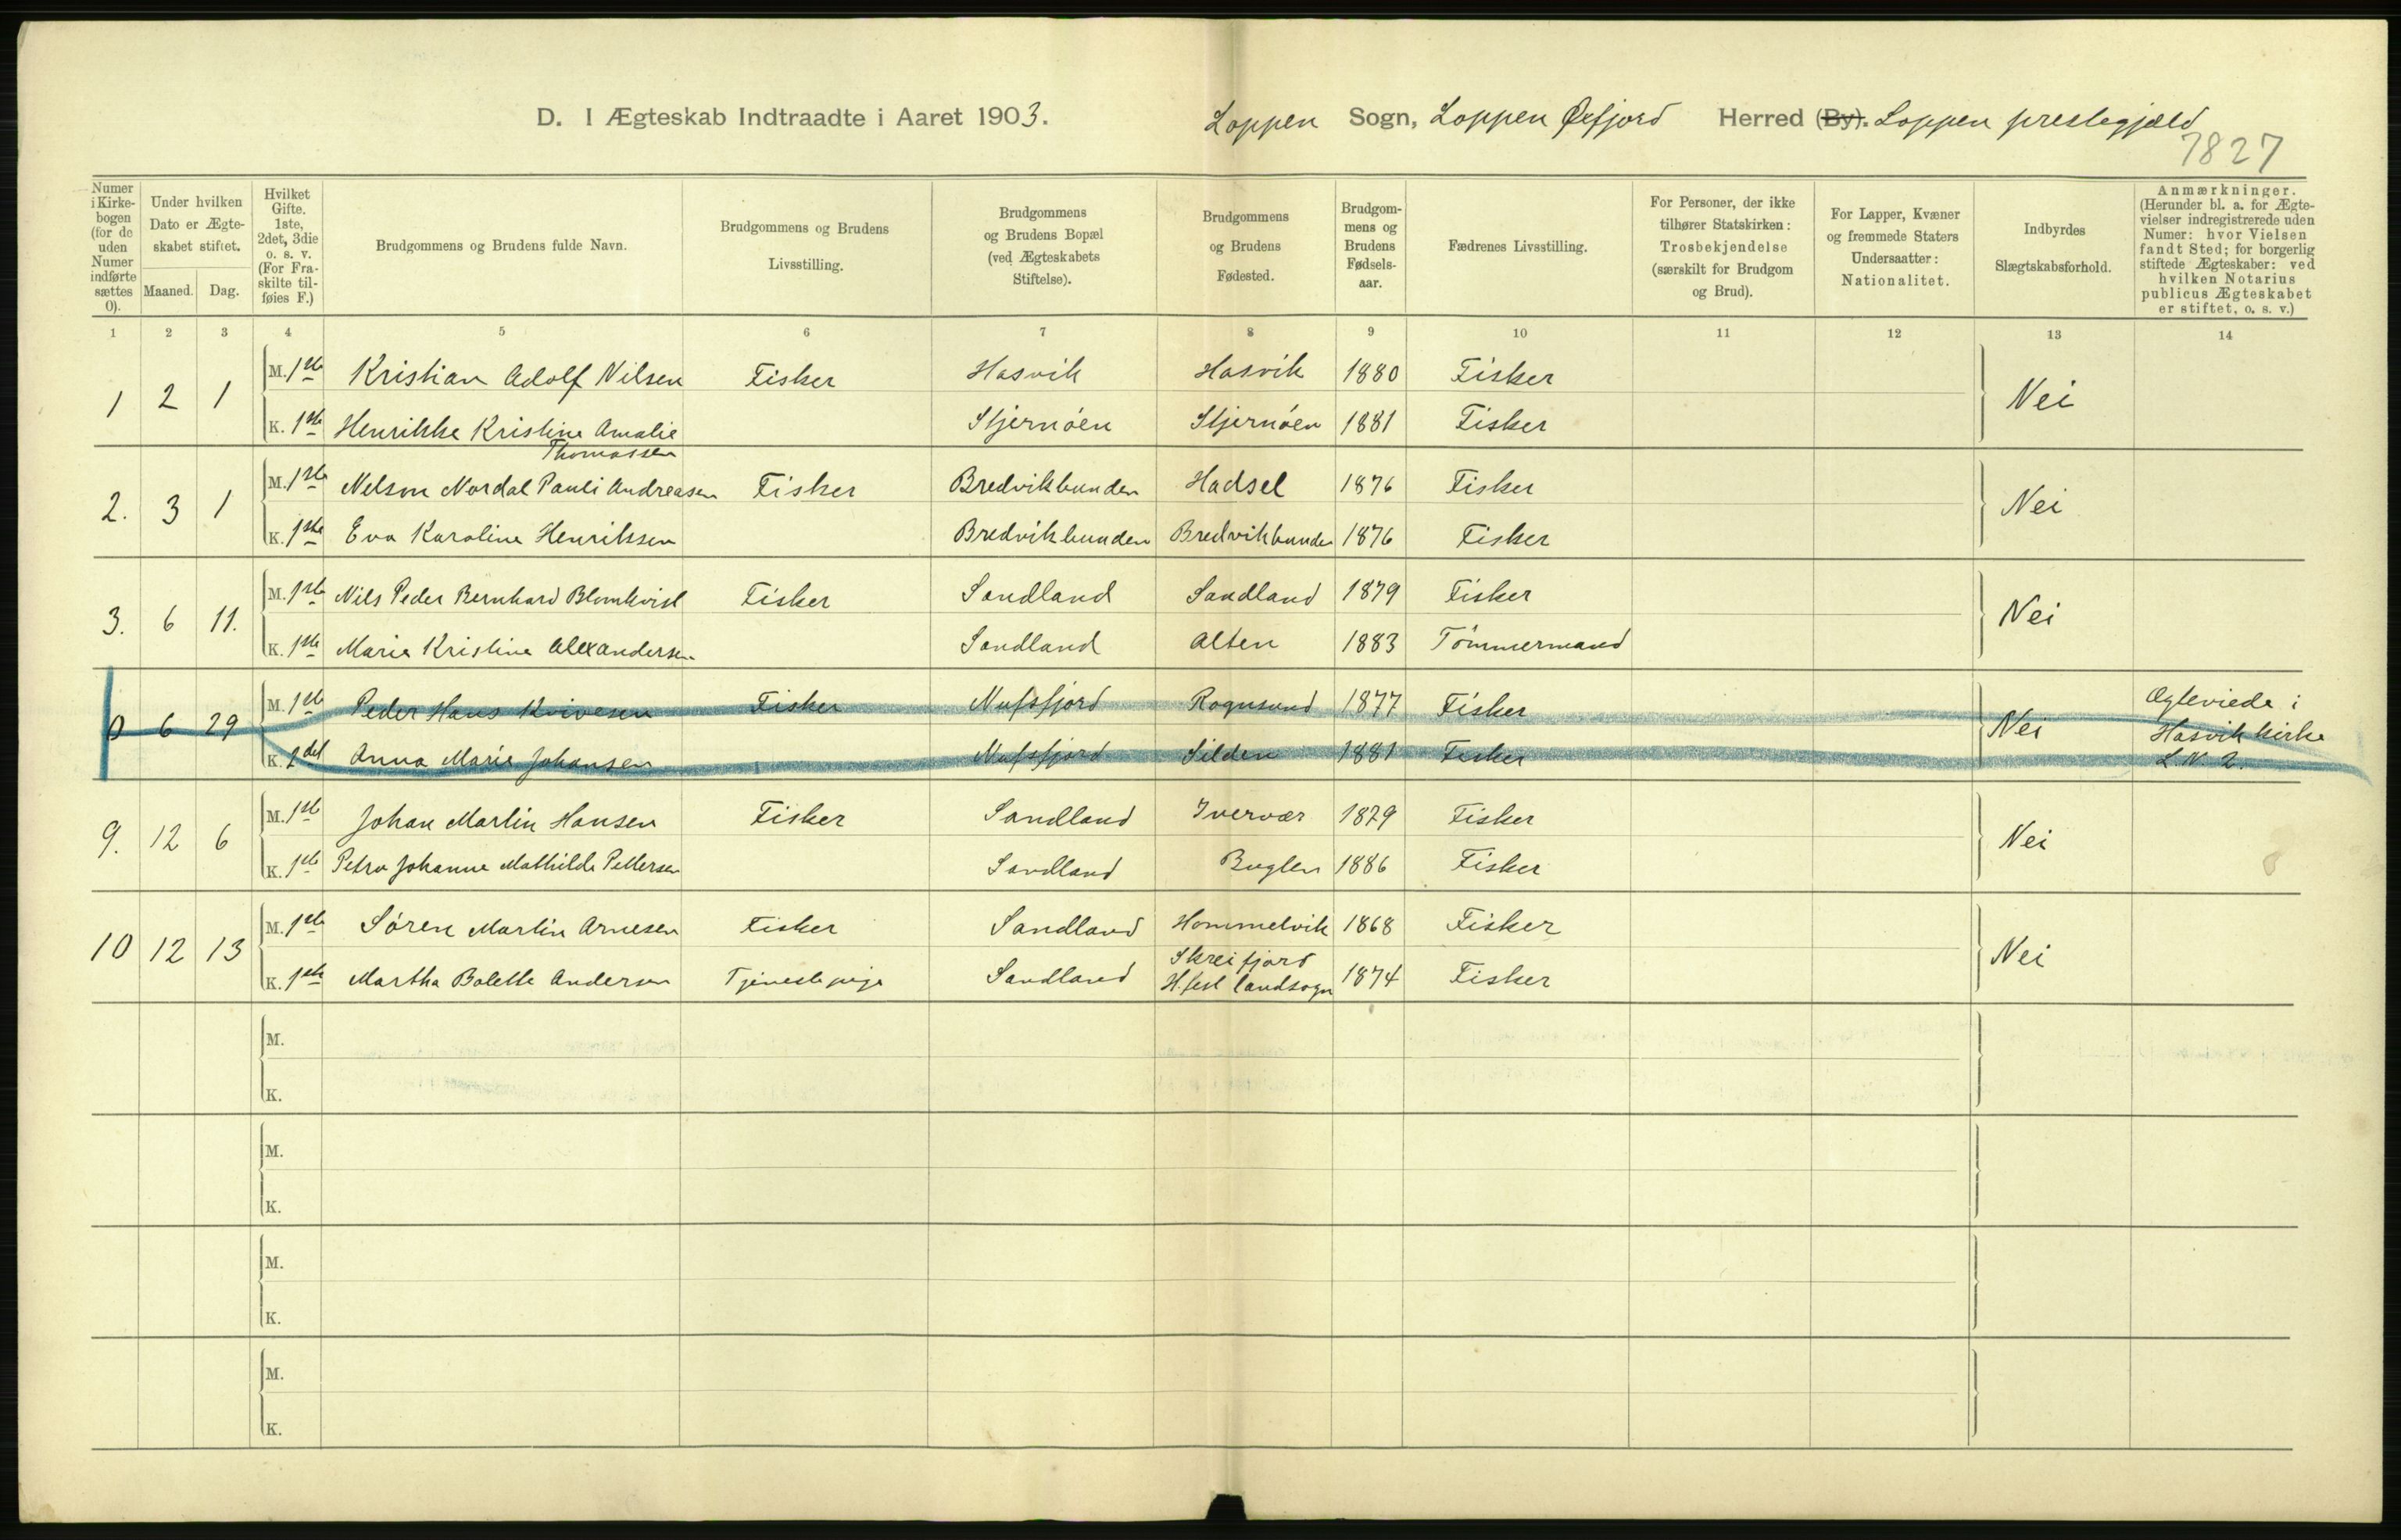 D. I Ægteskab Indtraadte i Aaret 1903. Loppen Sogn, Loppen Øxfjord Herred (By). Loppen prestegjæld
7827
Numer i Kirkebogen (for de uden Numer indførte sættes 0).
Under hvilken Dato er Ægteskabet stiftet.
Maaned. Dag.
Hvilket Gifte. 1ste, 2det, 3die o. s. v. (For Fraskilte tilføies F.)
Brudgommens og Brudens fulde Navn.
Brudgommens og Brudens Livsstilling.
Brudgommens og Brudens Bopæl (ved Ægteskabets Stiftelse).
Brudgommens og Brudens Fødested.
Brudgommens og Brudens Fødselsaar.
Fædrenes Livsstilling.
For Personer, der ikke tilhører Statskirken: Trosbekjendelse (særskilt for Brudgom og Brud).
For Lapper, Kvæner og fremmede Staters Undersaatter: Nationalitet.
Indbyrdes Slægtskabsforhold.
Anmærkninger. (Herunder bl. a. for Ægtevielser indregistrerede uden Numer: hvor Vielsen fandt Sted; for borgerlig stiftede Ægteskaber: ved hvilken Notarius publicus Ægteskabet er stiftet, o. s. v.)
1 2 3 4 5 6 7 8 9 10 11 12 13 14
1 2 1 M. 1ste Kristian Adolf Nilsen Fisker Hasvik Hasvik 1880 Fisker Nei
K. 1ste Henrikke Kristine Amalie Thomassen Stjernöen Stjernöen 1881 Fisker
2. 3 1 M. 1ste Nelson Nordal Pauli Andreasen Fisker Bredvikbunden Hadsel 1876 Fisker Nei
K. 1ste Eva Karoline Henriksen Bredvikbunden Bredvikbunden 1876 Fisker
3. 6 11. M. 1ste Nils Peder Bernhard Blomkvist Fisker Sandland Sandland 1879 Fisker Nei
K. 1ste Marie Kristine Alexandersen Sandland Alten 1883 Tömmermand
0 6 29 M. 1ste Peder Hans Fisker Nufsfjord Rognsund 1877 Fisker Nei Ægteviede i Hasvik kirke L. N. 2.
K. 2det Anna Marie Johansen Nufsfjord Silden 1881 Fisker
9. 12 6 M. 1ste Johan Martin Hansen Fisker Sandland Ivervær 1879 Fisker Nei
K. 1ste Petra Johanne Mathilde Pettersen Sandland Buglen 1886 Fisker
10 12 13 M. 1ste Sören Martin Arnesen Fisker Sandland Hommelvik 1868 Fisker Nei
K. 1ste Martha Bolette Andersen Tjenestepige Sandland Skreifjord H.fest landsogn 1874 Fisker
M.
K.
M.
K.
M.
K.
M.
K.